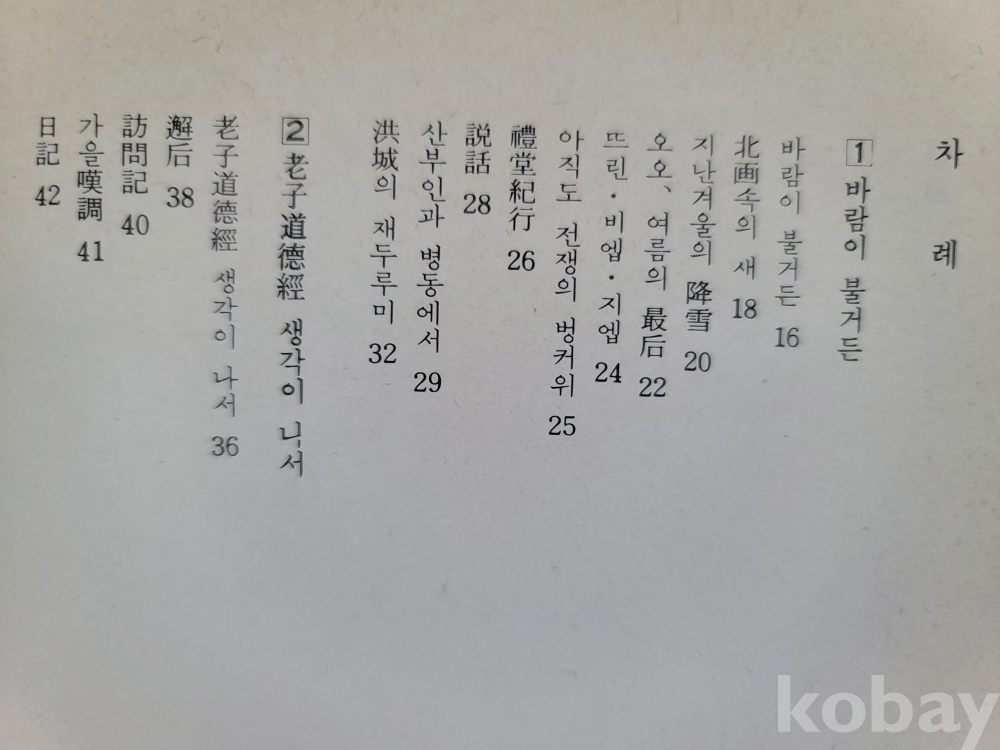 차 례
1 바람이 불거든
바람이 불거든 16
北画속의 새 18
지난겨울의 降雪 20
오오、여름의 最后 22
뜨린·비엡·지엡 24
아직도 전쟁의 벙커위 25
禮堂紀行 26
説話 28
산부인과 병동에서 29
洪城의 재두루미 32
2 老子道德經 생각이 나서
老子道德經 생각이 나서 36
邂后 38
訪問記 40
가을嘆調 41
日記 42
kobay